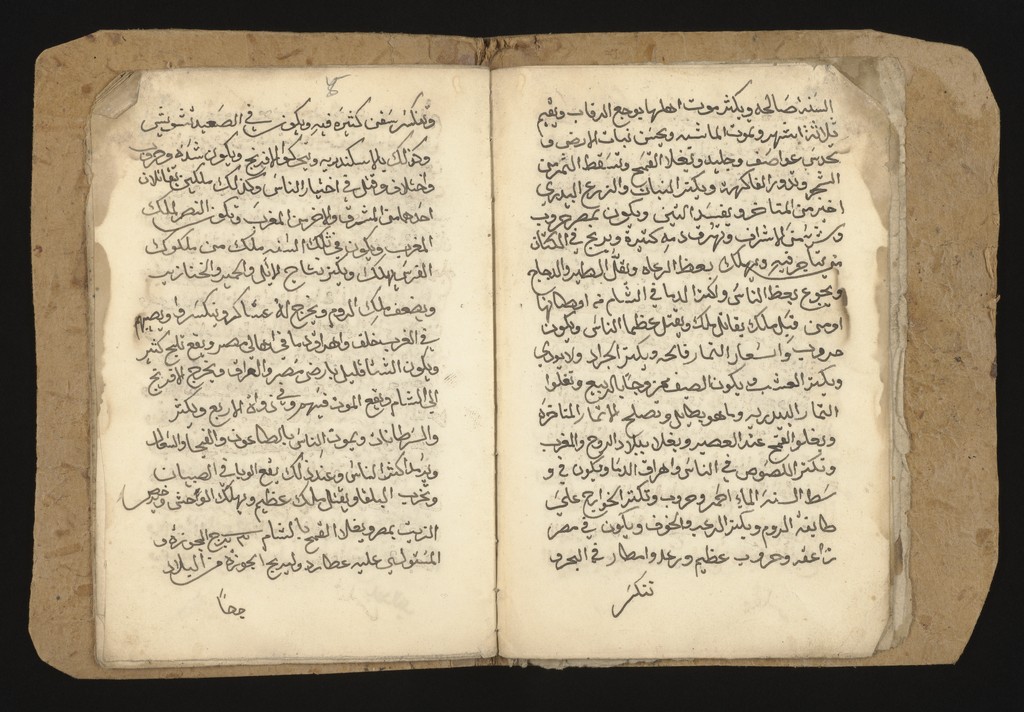 السنة صالحه ويكثر موت اهلها بوجع الرقاب ويقيم
ثلاثة اشهر وتموت الماشيه ويحسن نبات الارض و
عواصف وجليد وتغلا القمح وتسقط الثمر من
الشجر وتدور الفاكهة ويكثر النبات والزرع البدري
اخير من المتاخر ويفسد التين ويكون بمصر حروب
و من الاشراف وتهرق دمه كثيرة ويربح في الكتان
من يتاجر فيه ويهلك بعض الرعاه ويقل الطير والدجاج
ويجوع بعض الناس واكثر الدبا في الشام
اومن قبل ملك يقاتل ملك ويقتل عظما الناس ويكون
حروب واسعار الثمار فالحه ويكثر الجراد ولا يودي
ويكثر العشب ويكون الصيف الريح وتغلوا
الثمار البدريه وما هو بطايل ويصلح الاثمار المتاخرة
ويغلوا القمح عند العصير ويغلا ببلاد الروم والمغرب
وتكثر اللصوص في الناس واهراق الدما ويكون في و
سط السنة الماء احمر وحروب وتكثر الخوارج علي
طايفة الروم ويكثر الرعب والخوف ويكون في مصر
وحروب عظيم ورعد وامطار في البحر و
تنكسر
وتنكسر سفن كثيره فيه ويكون في الصعيد تشويش
وكذلك بالاسكندريه الافرنج ويكون شده وحروب
واختلاف وقتل في اختيار الناس وكذلك ملكين يقاتلان
احدهما من المشرق والاخر من المغرب وتكون النصر لملك
المغرب ويكون في تلك السنه ملك من ملكوك
الفرس يهلك ويكثر نتاج الابل والحمير والخنازير
ويضعف ملك الروم ويخرج له عساكر وينكسروا ويصيبهم
في الغرب خلف واهراق دما في اهالي مصر ويقع ثلج كثير
ويكون الشتا قليل بارض مصر والعراق ويخرج الافرنج
الى الشام ويقع الموت فيهم وفي ذوات الاربع ويكثر
والسرطانات ويموت الناس بالطاعون والفجا والسعال
اكثر الناس وعند ذلك يقع الوبا في الصبيان
وتخرب ويقتل ملك عظيم ويهلك الوحش
الزيت بمصر ويغلا القمح بالشام برج الجوزة و
المستولي عليه عطارد ولبرج الجوزة من البلاد